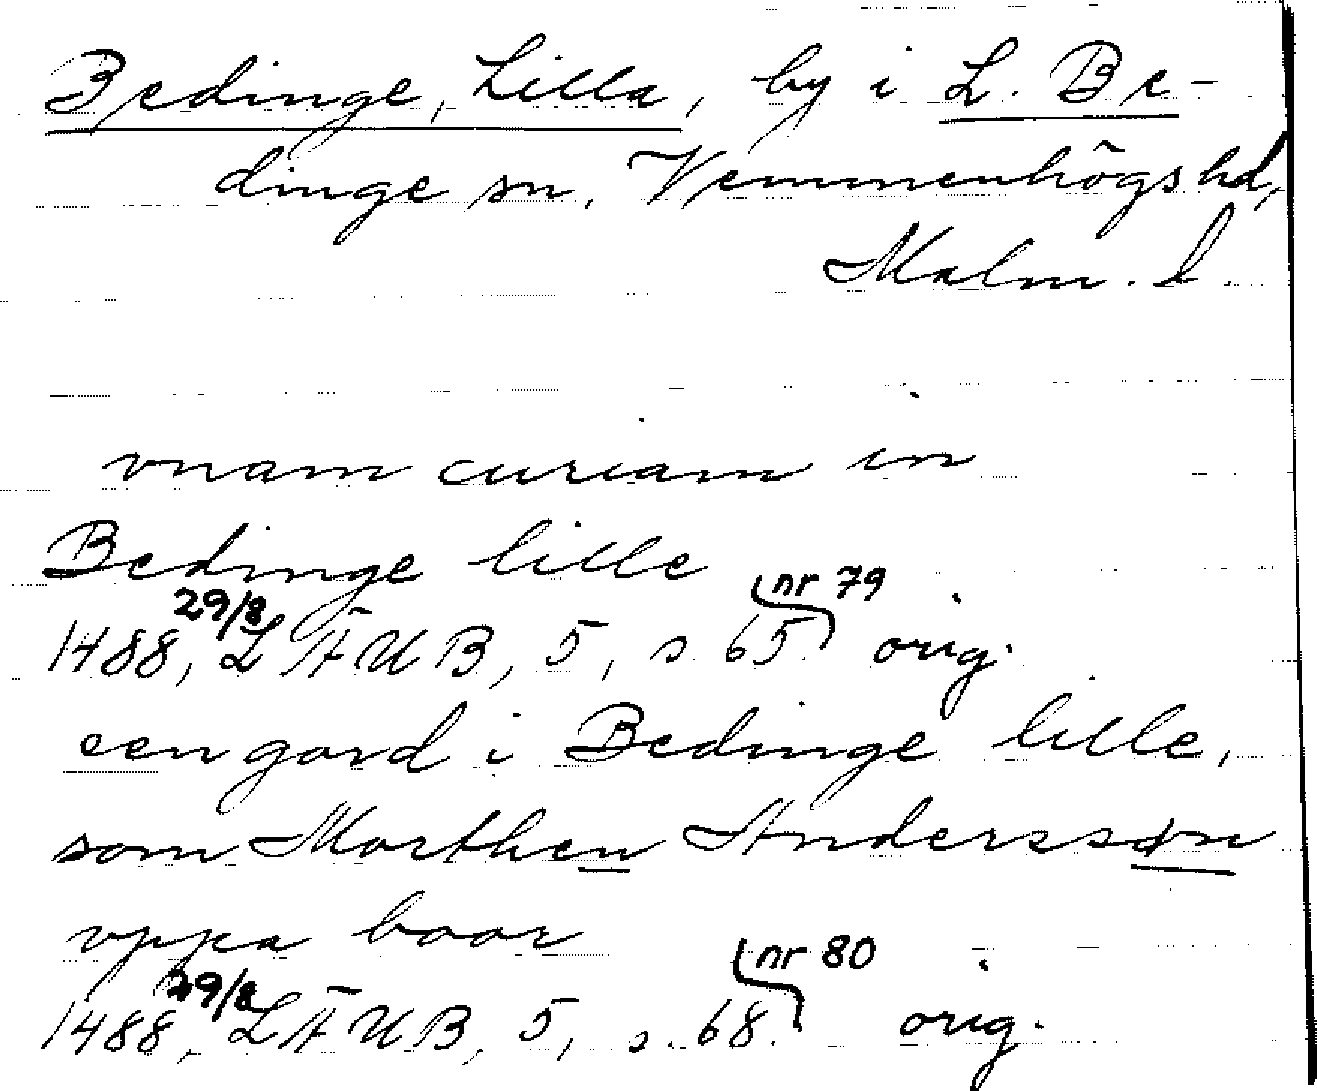 Bedinge, Lilla, by i L. Be-
dinge sn, Vemmenhögs hd,
Malm. l.
vnam curiam in
Bedinge lille
1488, 29/8 LÄUB, 5, s. 65. nr 79 orig.
een gard i Bedinge lille,
som Morthen Anderssøn
vppa boor
1488, 29/8 LÄUB, 5, s. 68. nr 80 orig.